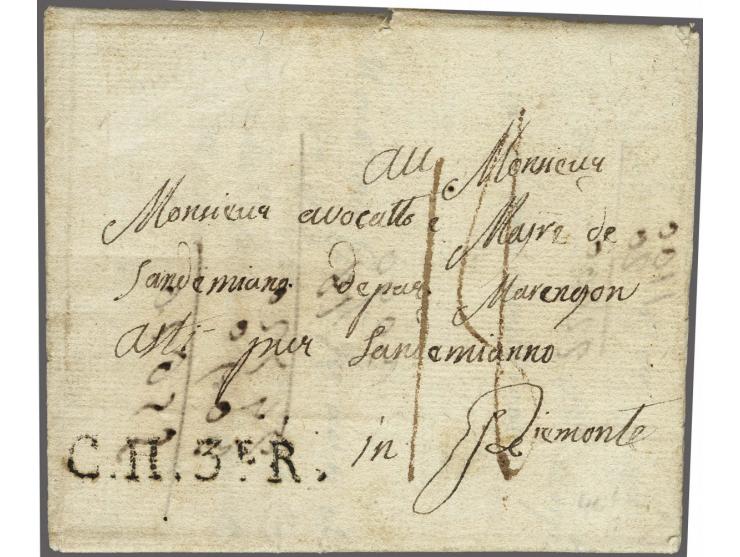 au Monsieur
Monsieur avocatto e Majre de
Sandemiano depar. Marengon
asti per Sandemianno
in Piemonte
C.H.3E R.